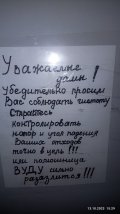 Уважаемые
дамы!
Убедительно просим
Вас соблюдать чистоту
Старайтесь
контролировать
напор и угол падения
Ваших отходов
точно в цель!!!
или помощница
ВУДУ сильно
разозлится!!!